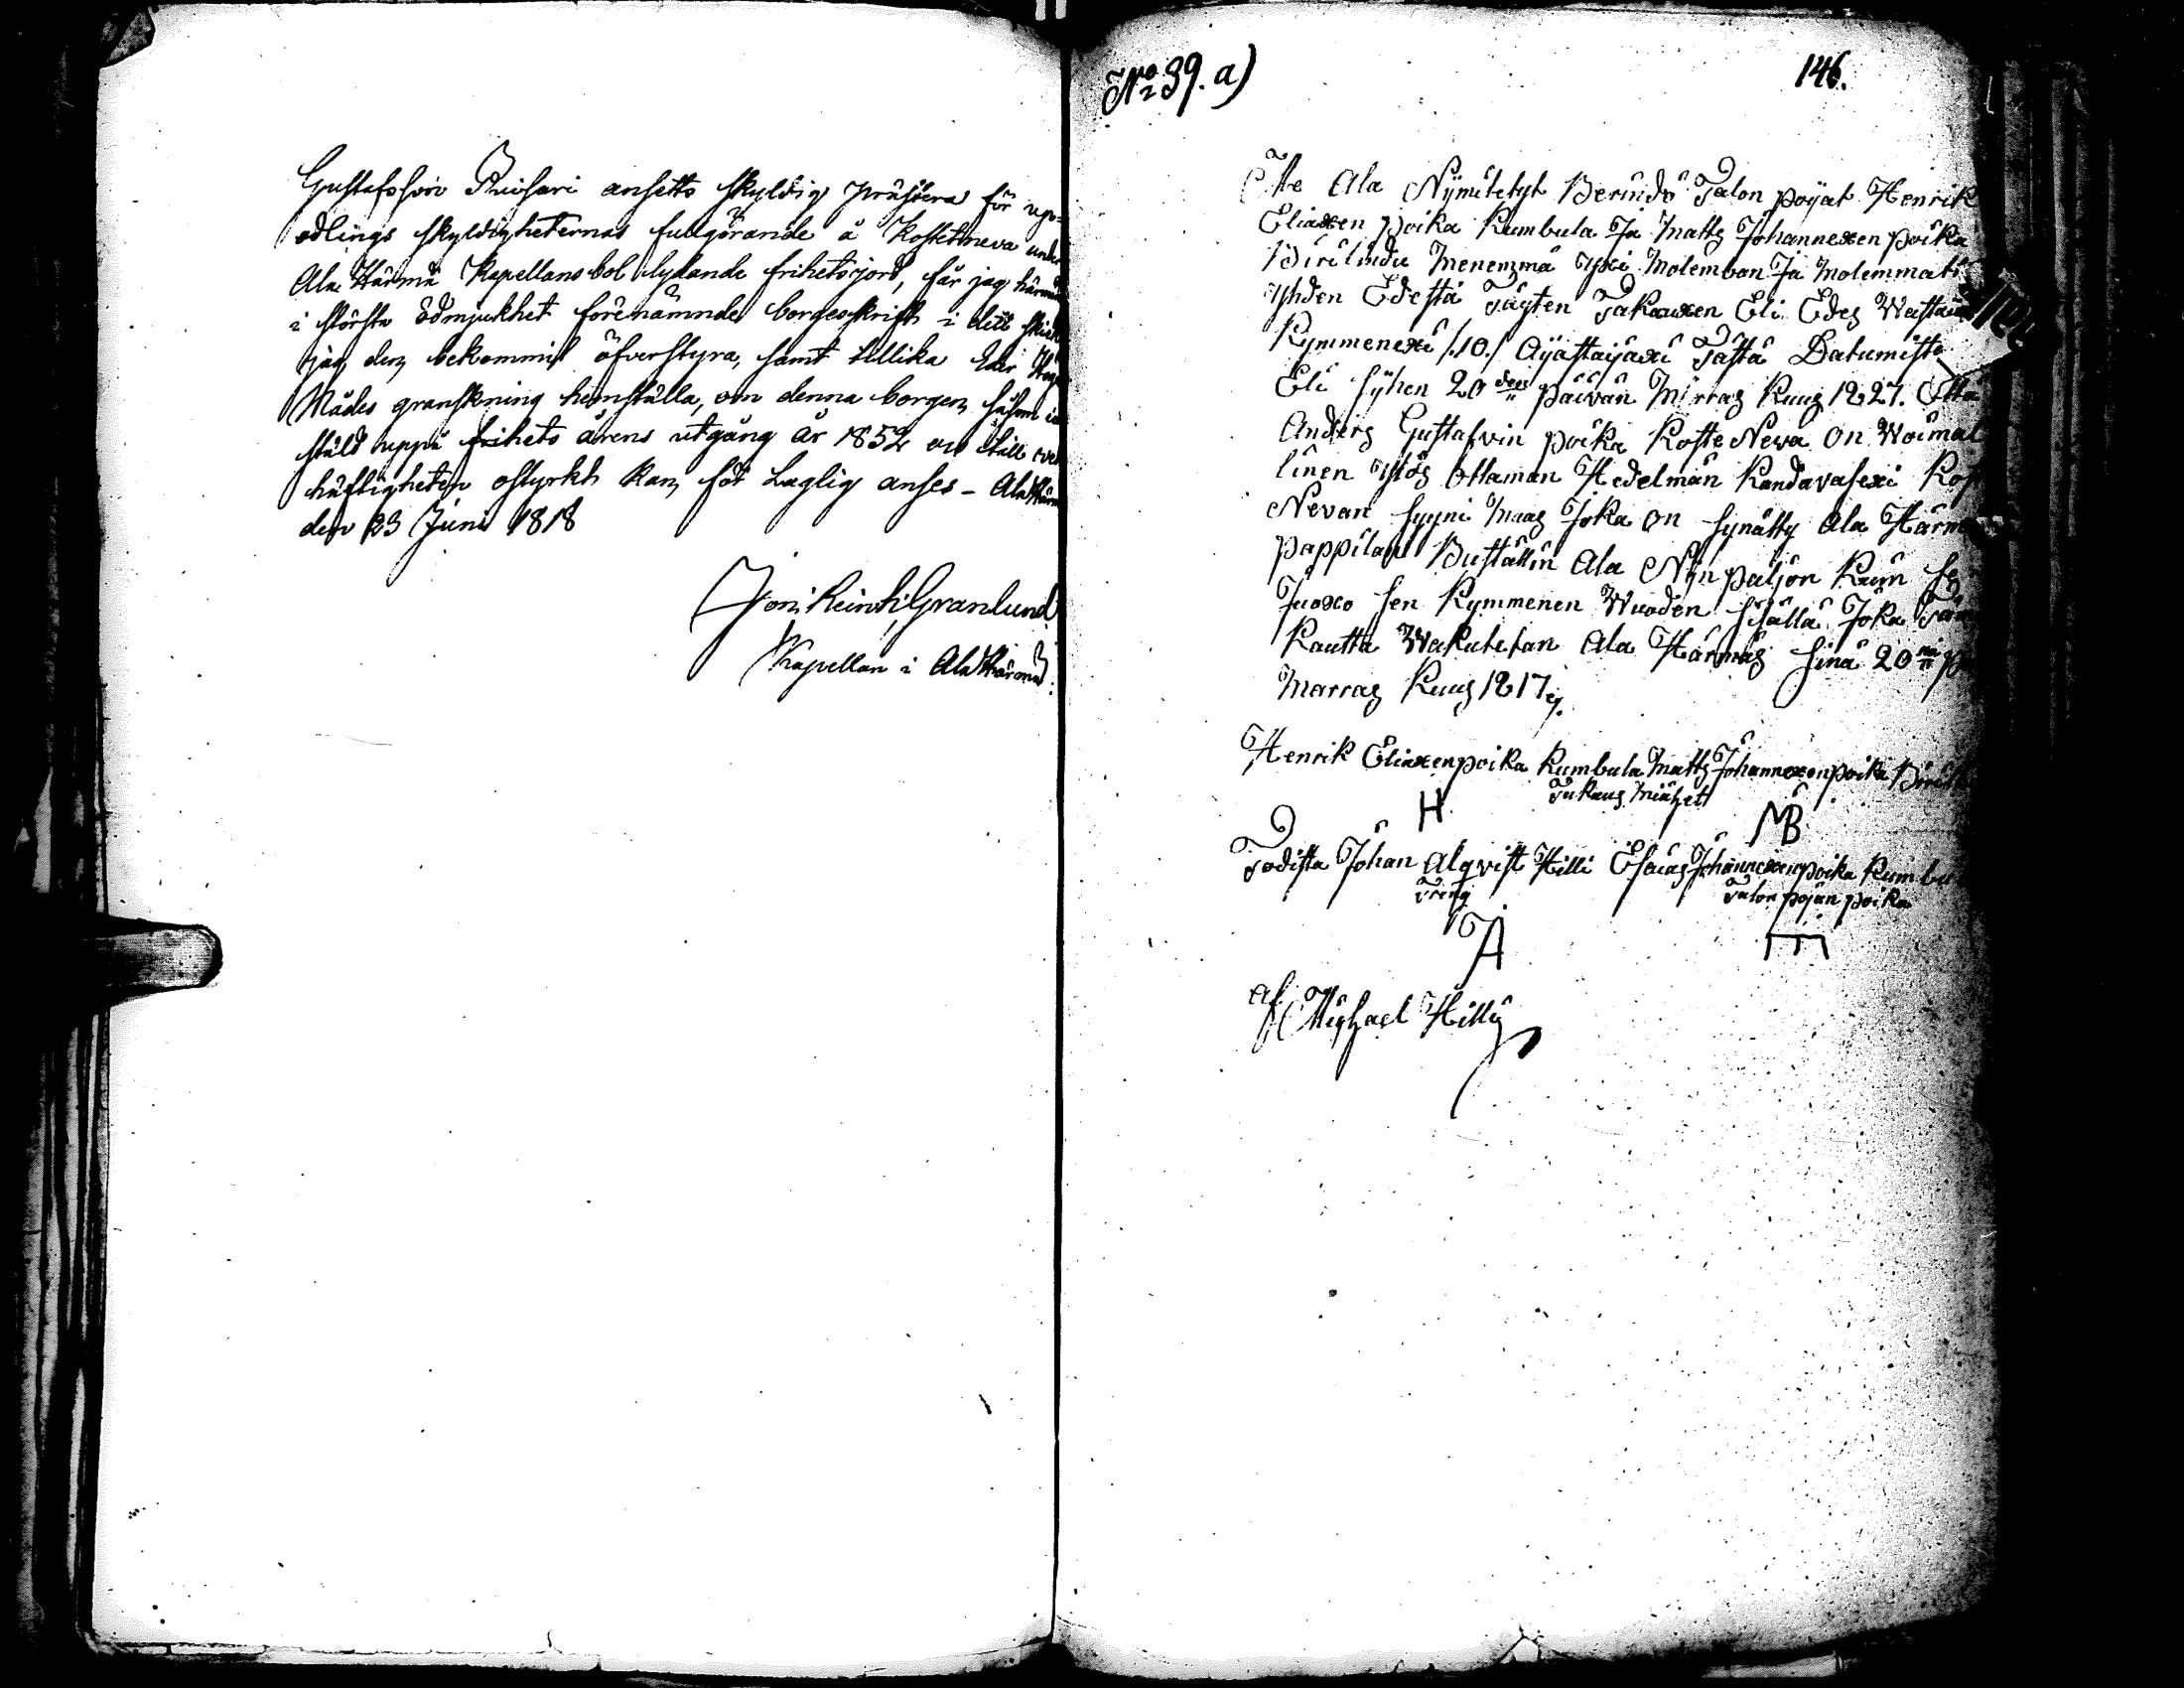 Gustafsson Ruisari ansetts skyldig præstera för upp=
odlings skyldigheternas fullgörande å Kostetneva under
Ala Härmä Kapellansbol lydande frihetsjord, får jag härmed
i största ödmjukhet förenämnde borgesskrift i ditt skick
jag den bekommit öfverstyra, samt tillika Eder Höga
Nådes granskning hemställa, om denna borgen, såsom in
ställd uppå frihets årens utgång år 1852 och till
häftigheten ostyrkt kan för Laglig anses - Ala Härmä
den 23 Juni 1818
Granlund
Kapellan i Ala Härmä.
No 39. a)
146.
Me Ala Nÿmitetyt Berindö Talon poÿat Henrik
Eliaxen poika Kumbula Ja Matts Johannexen poika
Birilindu Menemmä yxi Molemban Ja Molemmat
yhden Edestä Täÿten Takauxen Eli Edes Wastau
Kymmenexi /:10./ Ayastaijaxi Tästä Datumista
Eli syhen 20 den päivän Marras Kuus 1827. Että
Anders Gustafvin poika Koste Neva on Woimal
linen ylös Ottaman Hedelmän Kandavasexi Kost
Nevan syyni Maas Joka on synätty Ala Härmä
pappilan Buställin Ala Nÿn paljon Kuin
Juoxo sen Kymmenen Wuoden sisällä Joka Tämän
Kautta Wakutetan Ala Härmäs sinä 20 nä
Marras Kuus 1817.
Henrik Eliaxenpoika Kumbula Matts Johannexenpoika
Takaus Miähet
H MB
Todista Johan Alqvist Hilli Esaias Johannexenpoika Kumbu
Talon pojan poika
A E
af
Michael Hilli